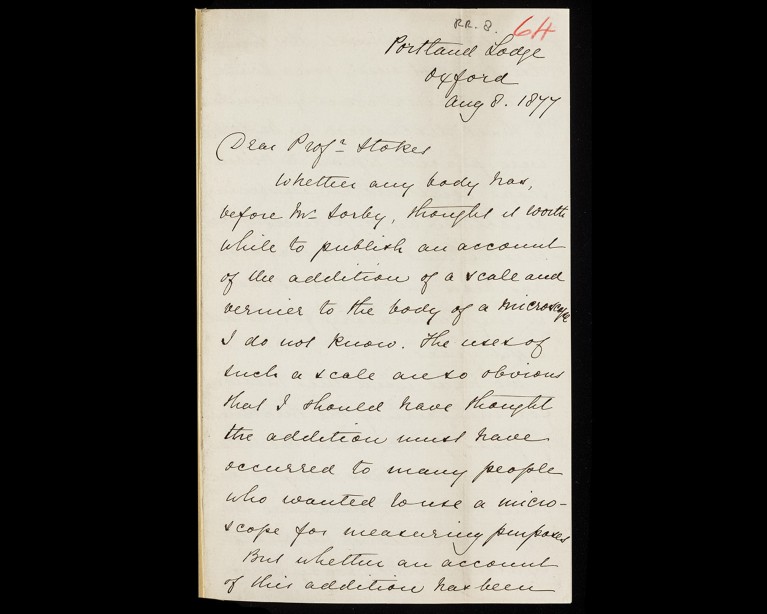 RR. 8. 64
Portland Lodge
Oxford
Aug 8. 1877
Dear Profr Stokes
Whether any body has,
before Mr Sorby, thought it worth
while to publish an account
of the addition of a scale and
vernier to the body of a microscope
I do not know. The uses of
such a scale are so obvious
that I should have thought
the addition must have
occurred to many people
who wanted to use a micro-
scope for measuring purposes
But whether an account
of this addition has been